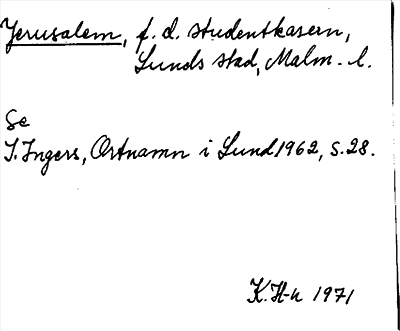 Jerusalem, f. d. studentkasern,
Lunds stad, Malm. l.
Se
I. Ingers, Ortnamn i Lund 1962, s. 28.
K. H-n 1971